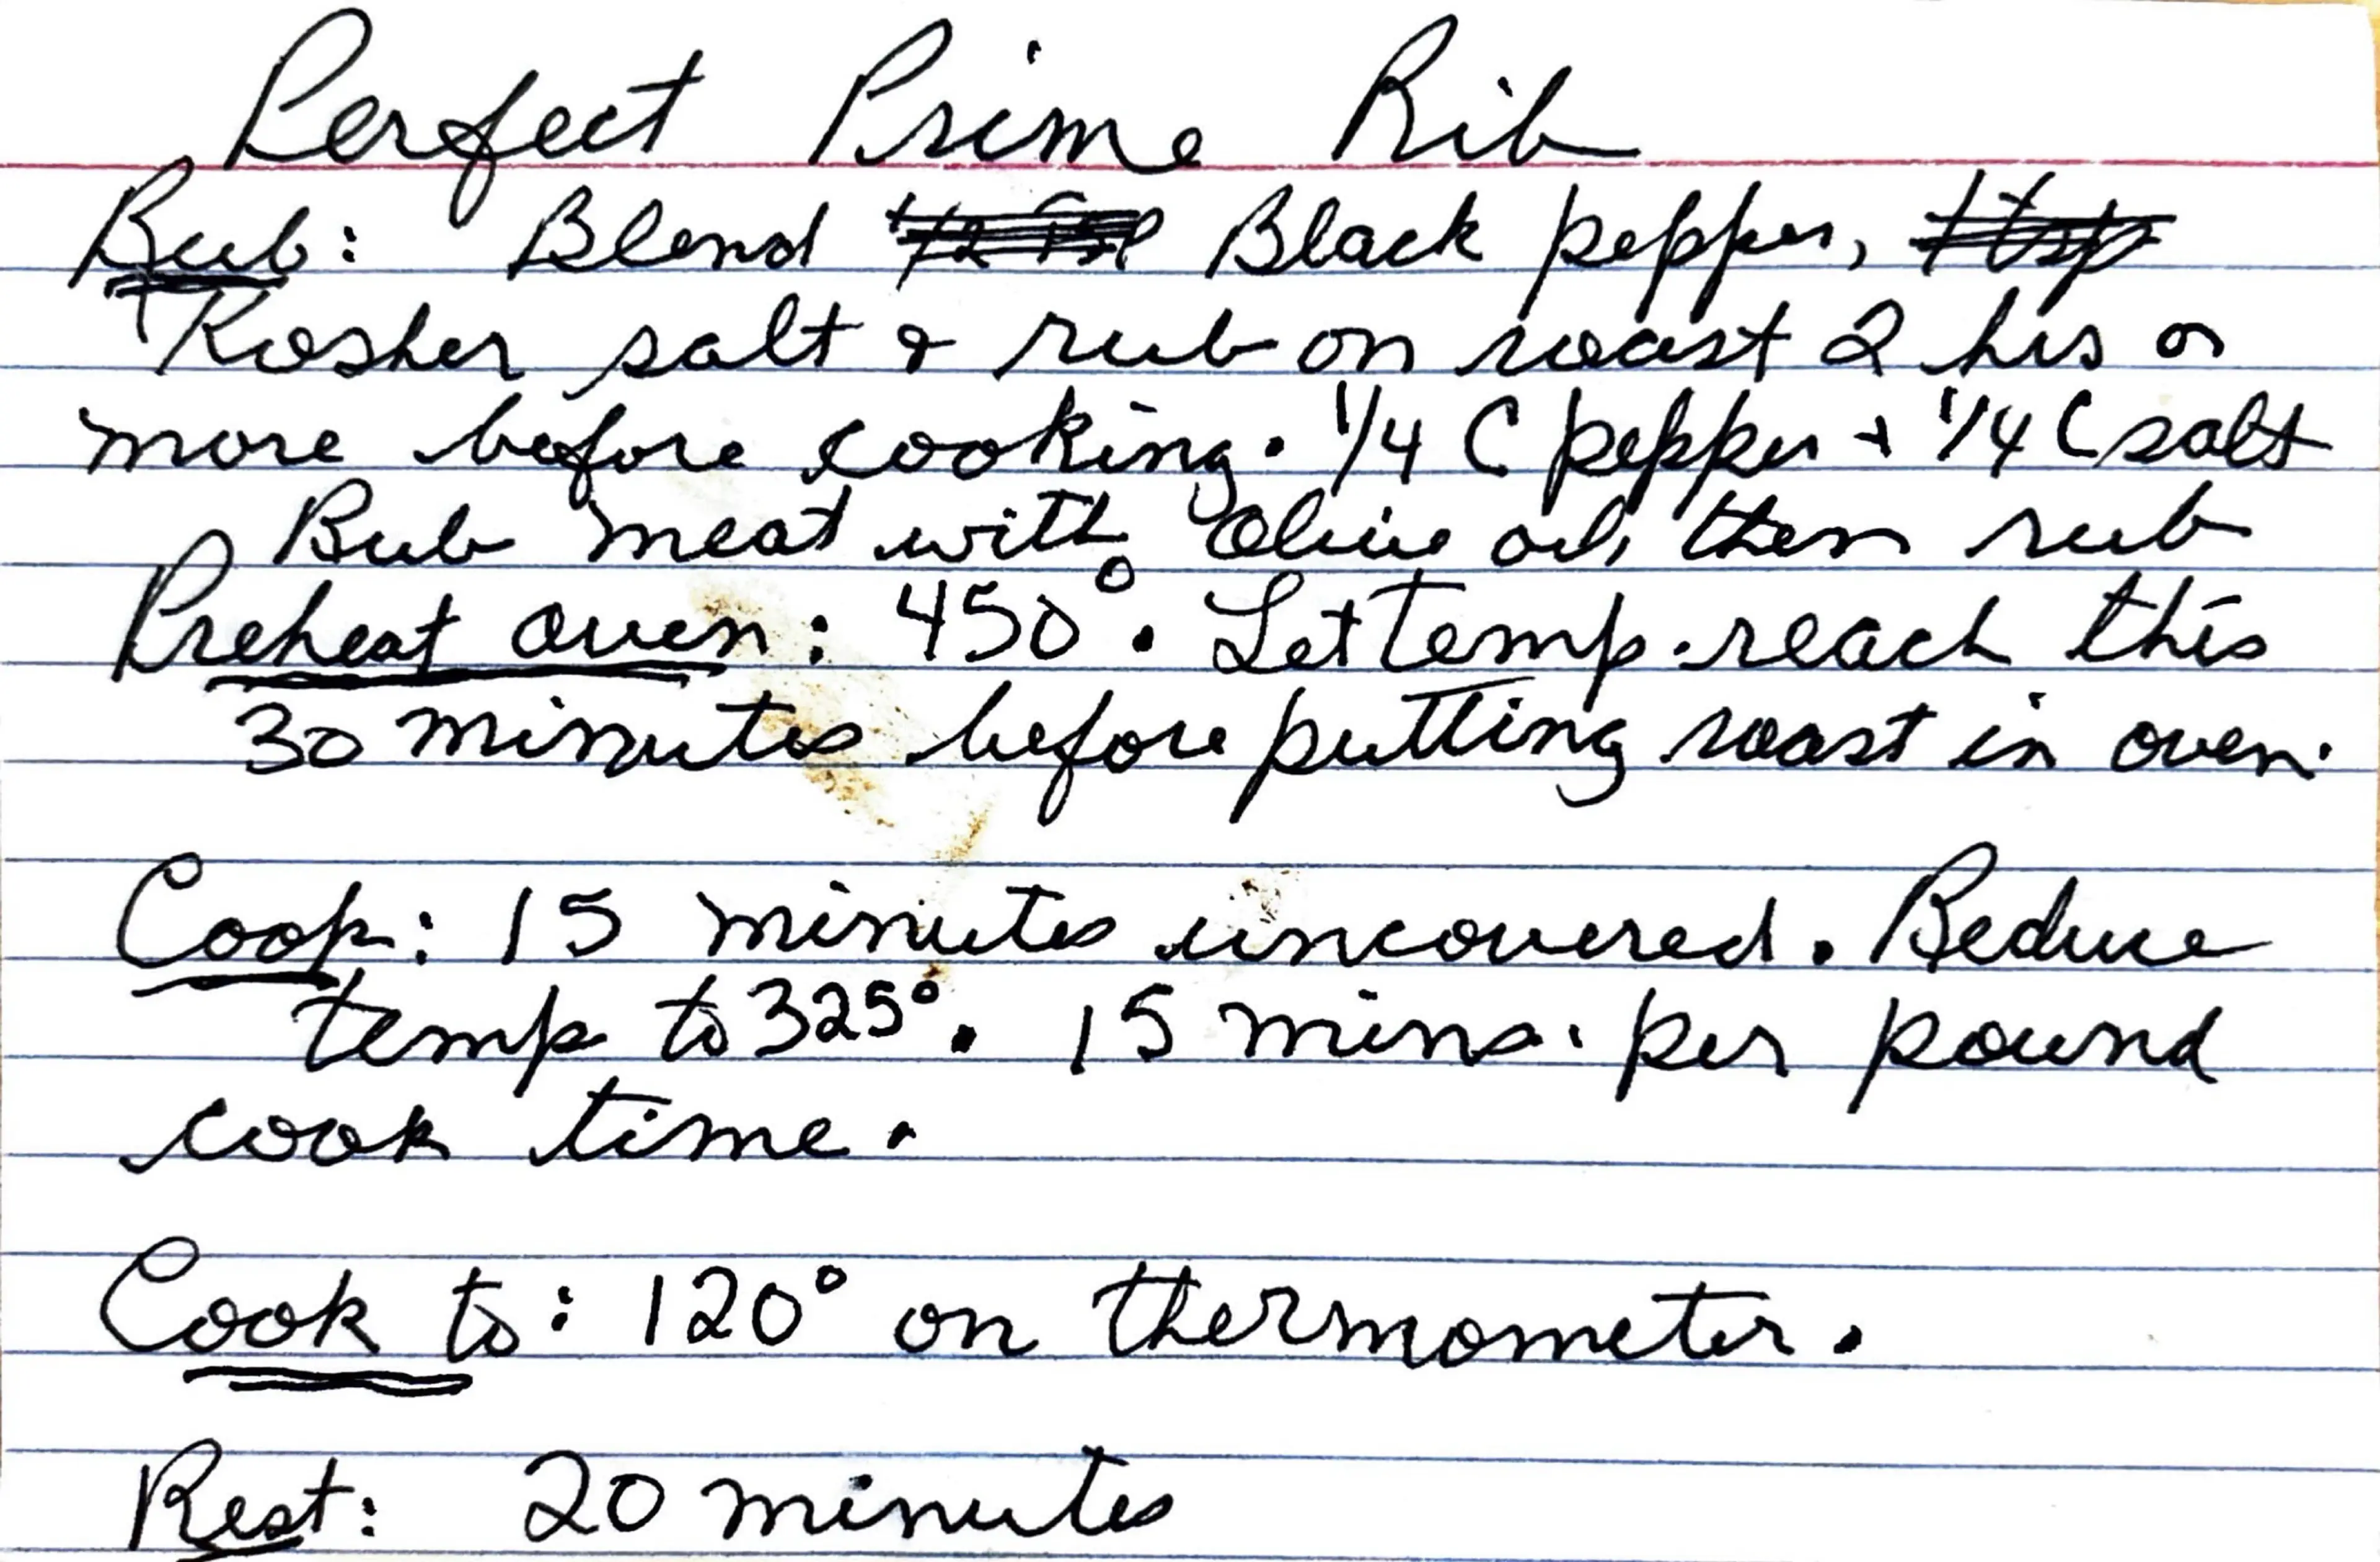 Perfect Prime Rib
Rub: Blend Black pepper,
Kosher salt & rub on roast 2 hrs or
more before cooking. 1/4 C pepper + 1/4 C salt
Rub meat with Olive oil, then rub
Preheat oven: 450°. Let temp. reach this
30 minutes before putting roast in oven.
Cook: 15 minutes uncovered. Reduce
temp to 325°. 15 mins. per pound
cook time.
Cook to: 120° on thermometer.
Rest: 20 minutes